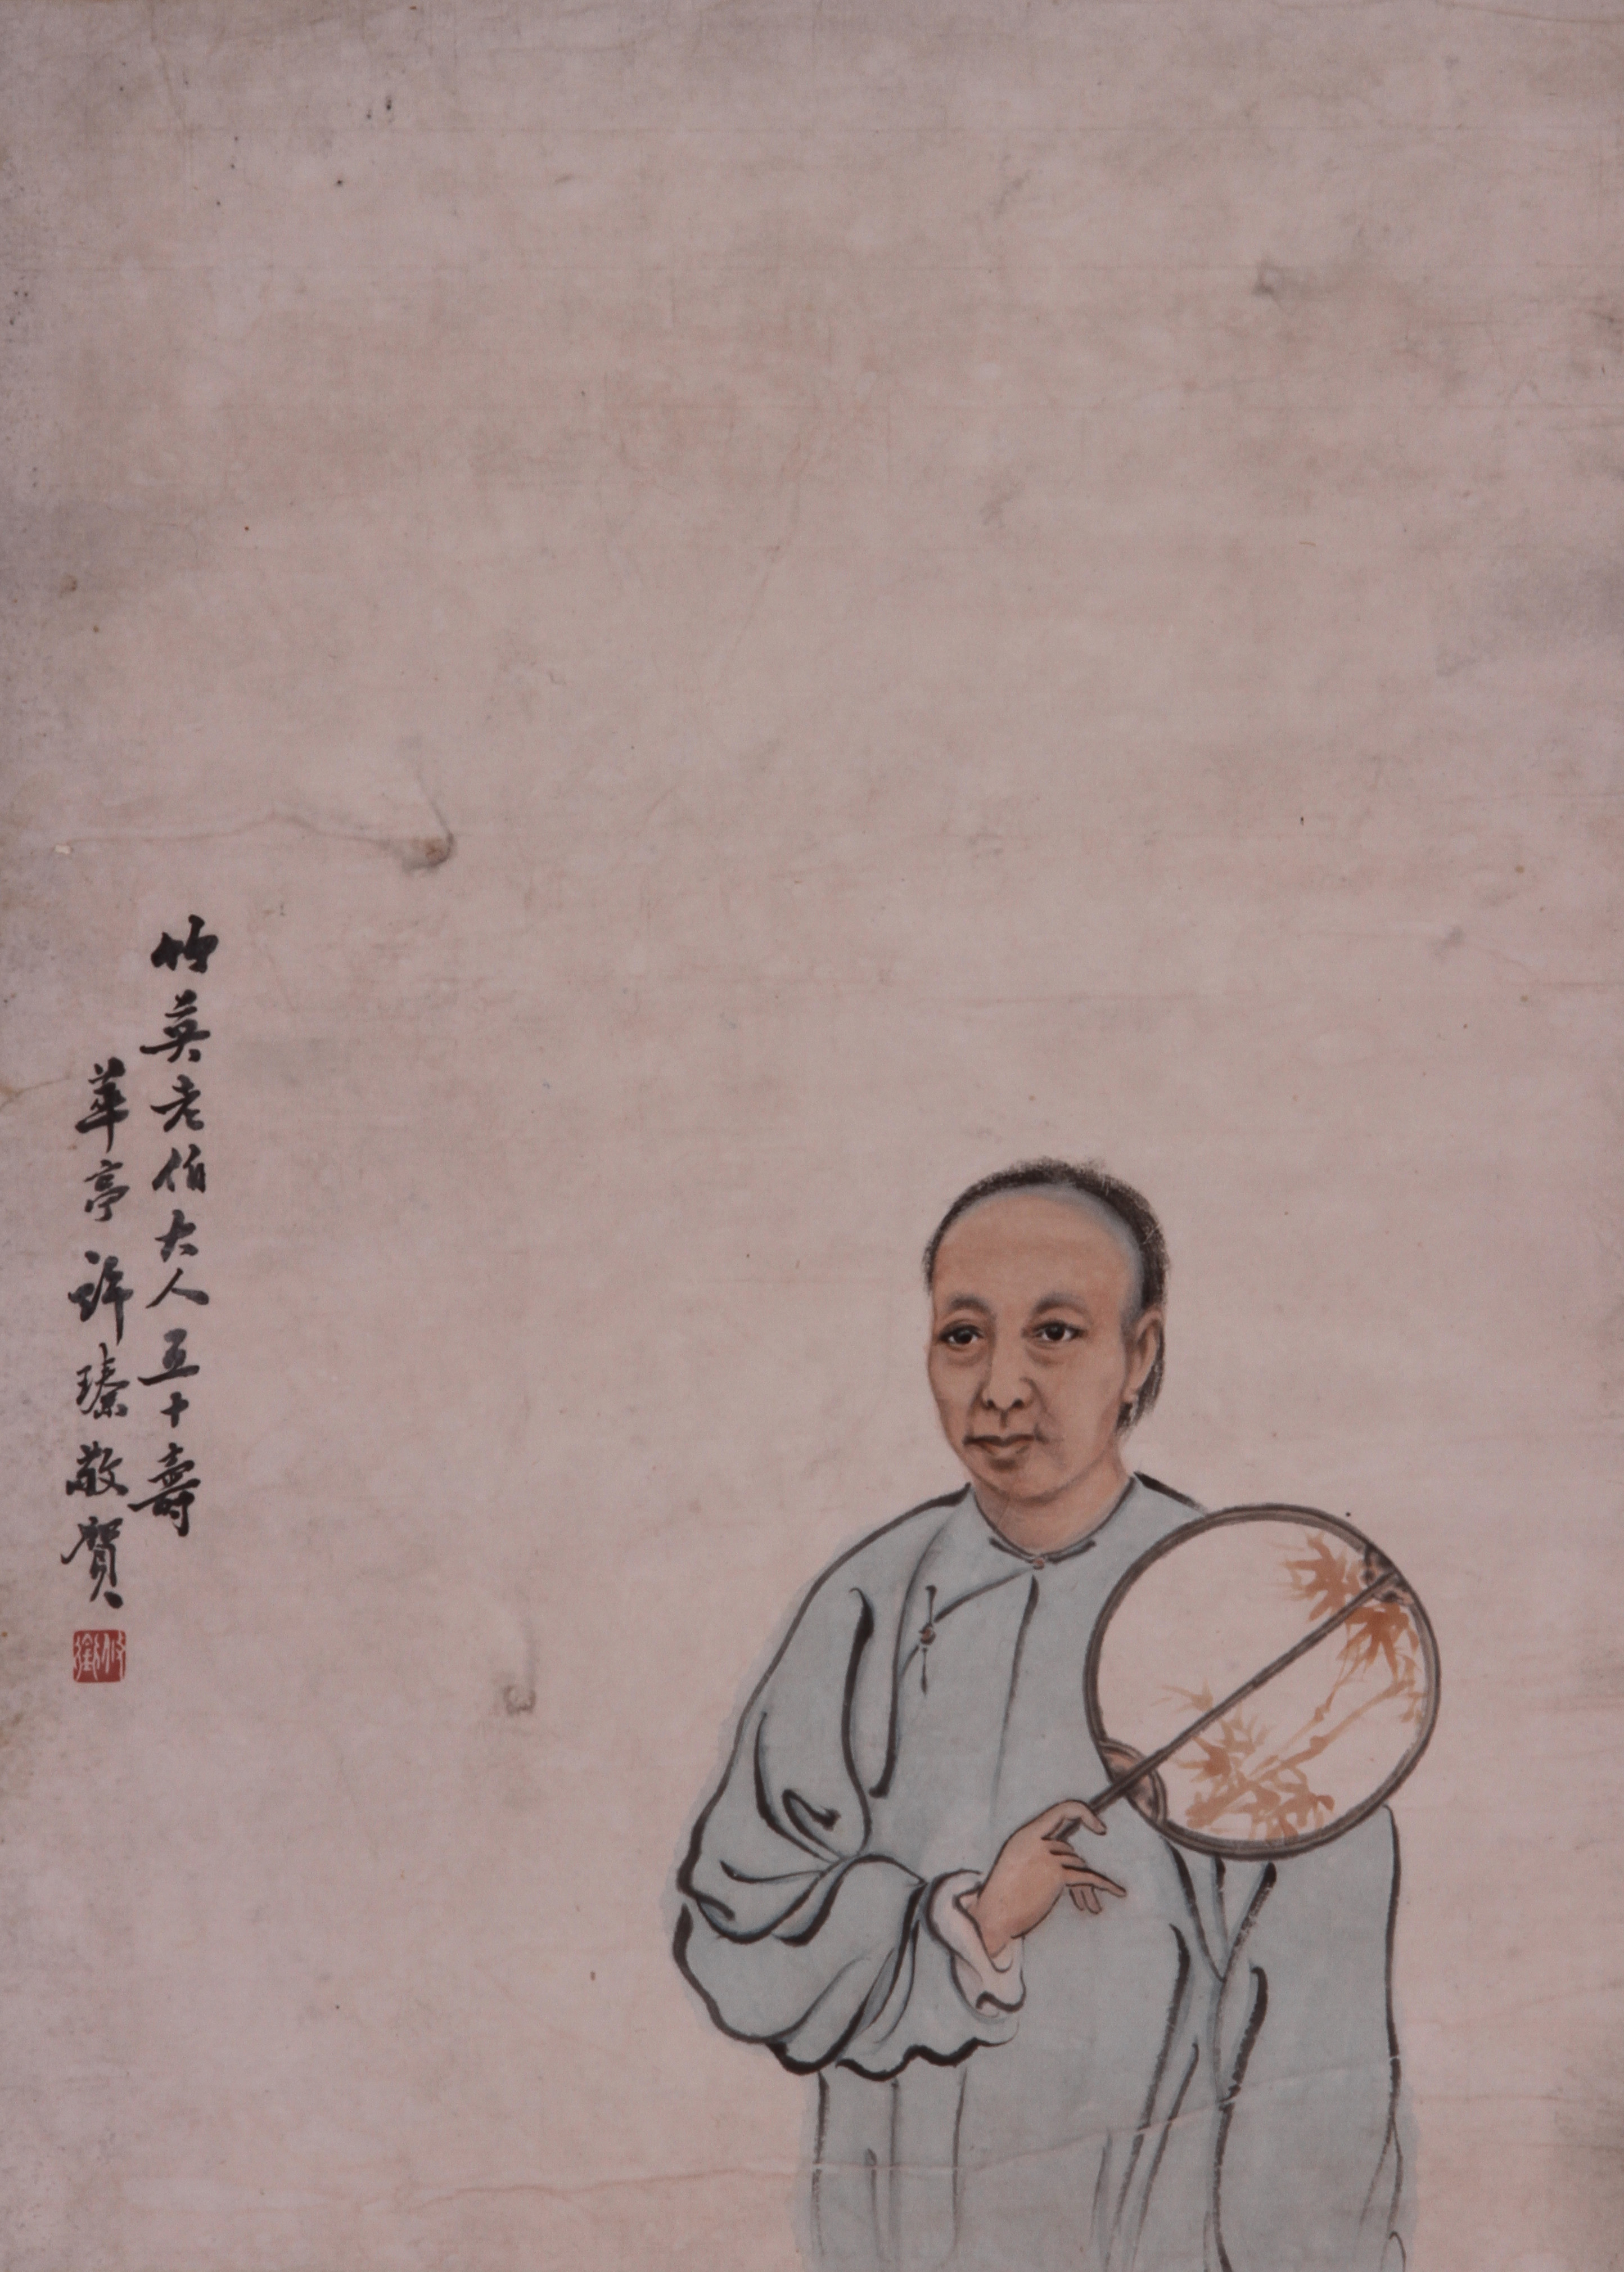 竹英老伯大人五十壽
華亭許瑧敬賀